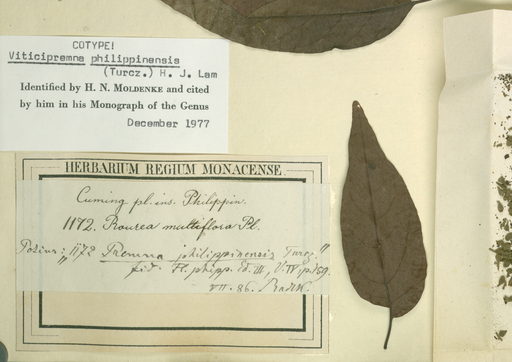 COTYPE!
Viticipremna philippinensis
(Turcz.) H. J. Lam
Identified by H. N. MOLDENKE and cited
by him in his Monograph of the Genus
December 1977
HERBARIUM REGIUM MONACENSE.
Cuming pl. ins. Philippin.
1172. Rourea multiflora Pl.
Potius: „1172 Premna philippinensis Turcz."
fid. Fl. phipp. Ed. III, V. IV, p. 159.
VII. 86. Radlk.